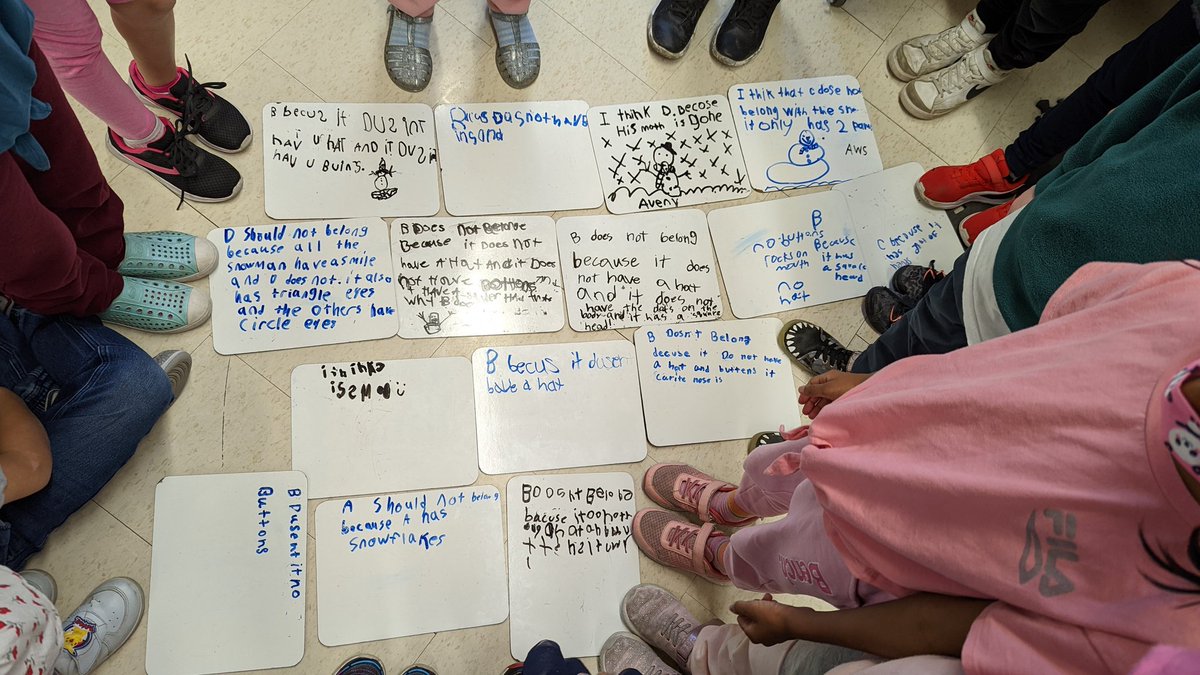 B Becus it DUSINT
hav U HAT AND it DUSiN
HAV U BUINS.
DOGS not HAVE
I think D. Decose
His moth is gone
Aveny
I think that C dose not
belong with the
it only has 2
AWS
D should not belong
because all the
snowman have a smile
and D does not. it also
has triangle eyes
and the others have
circle eyes
B Does Not Belong
Because it Does Not
have A Hat And it Does
not Have Bottons
why B
B does not belong
because it does
not have a hat
and it does not
have the dots on the
body and it has a square
head!
B
no buttons Because
rocks on it was
mouth a square
head
no
hat
C because it
has
B becus it dusen
have a hat
B Dosn't Belong
becuse it Do not have
A hat and buttens it
carite nose is
B Dusent it no
Buttons
A Should not belong
because A has
snowflakes
Belong
FILA